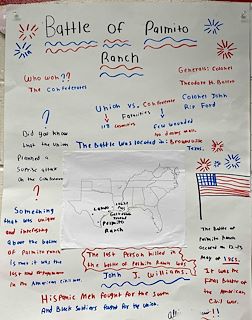 Battle of Palmito
Ranch
Who won??
The Confederates
Generals: Colonel
Theodore H. Barrett
Colonel John
Rip Ford
Union vs. Confederate
Fatalities
118 casualties
few wounded
no deaths
?
Did you know
that the Union
planned a
surprise attack
on the Confederate
The Battle was located in: Brownsville
Texas.
?
Something
that was unique
and interesting
about the battle
of Palmito ranch
is that it was the
last one
in the American civil war.
Palmito
Ranch
The Battle of
Palmito Ranch
occured on 12-13
May of 1865.
It was the
Final Battle of
the American
Civil war.
!!
The last Person killed in
the battle of Palmito Ranch was
John J. Williams.
Hispanic Men fought for the South
And Black Soldiers fought for the Union.